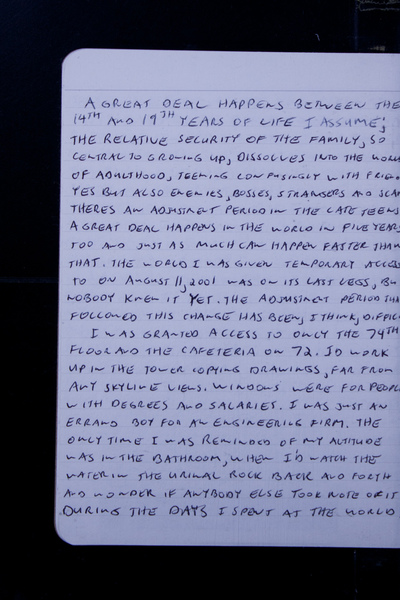 A GREAT DEAL HAPPENS BETWEEN THE
14TH AND 19TH YEARS OF LIFE I ASSUME;
THE RELATIVE SECURITY OF THE FAMILY, SO
CENTRAL TO GROWING UP, DISSOLVES INTO THE WORL
OF ADULTHOOD, TEEMING CONFUSINGLY WITH FRIEN
YES BUT ALSO ENEMIES, BOSSES, STRANGERS AND SCA
THERES AN ADJUSTMENT PERIOD IN THE LATE TEENS
A GREAT DEAL HAPPENS IN THE WORLD IN FIVE YEARS
TOO AND JUST AS MUCH CAN HAPPEN FASTER THAN
THAT. THE WORLD I WAS GIVEN TEMPORARY ACCESS
TO ON AUGUST 11, 2001 WAS ON ITS LAST LEGS, BU
NOBODY KNEW IT YET. THE ADJUSTMENT PERIOD THA
FOLLOWED THIS CHANGE HAS BEEN, I THINK, DIFFIC
I WAS GRANTED ACCESS TO ONLY THE 74TH
FLOOR AND THE CAFETERIA ON 72. ID WORK
UP IN THE TOWER COPYING DRAWINGS, FAR FROM
ANY SKYLINE VIEWS. WINDOWS WERE FOR PEOPL
WITH DEGREES AND SALARIES. I WAS JUST AN
ERRAND BOY FOR AN ENGINEERING FIRM. THE
ONLY TIME I WAS REMINDED OF MY ALTITUDE
WAS IN THE BATHROOM, WHEN I'D WATCH THE
WATER IN THE URINAL ROCK BACK AND FORTH
AND WONDER IF ANYBODY ELSE TOOK NOTE OF IT
DURING THE DAYS I SPENT AT THE WORLD